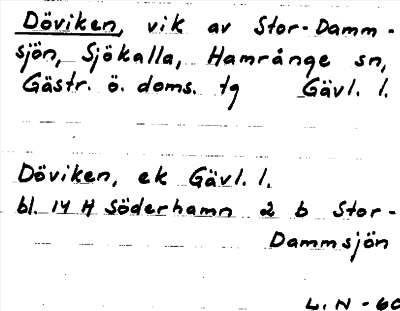 Döviken, vik av Stor-Damm-
sjön, Sjökalla, Hamrånge sn,
Gästr. ö. doms. tg Gävl. l.
Döviken, ek Gävl. l.
bl. 14 H Söderhamn 2 b Stor-
Dammsjön
L. N - 60